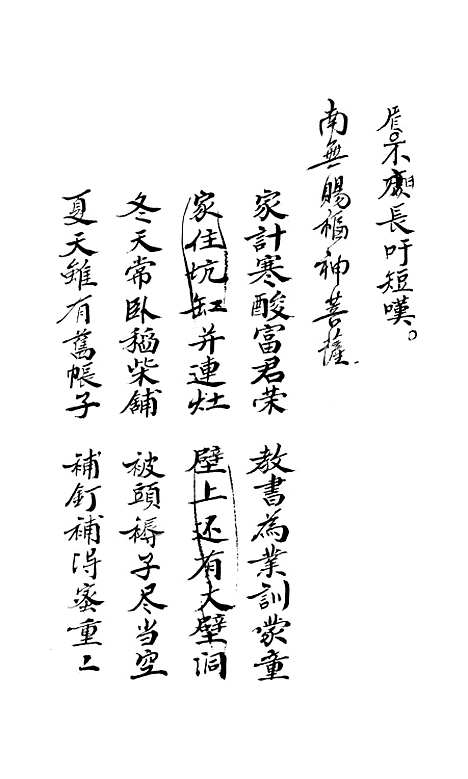 唇。不癈長吁短嘆。
南無賜福神菩薩.
家計寒酸富君荣 教書為業訓蒙童
家住坑缸并連灶 壁上还有大壁洞
冬天常卧稻柴舖 被頭褥子尽当空
夏天雖有舊帳子 補釘補得蜜重〻